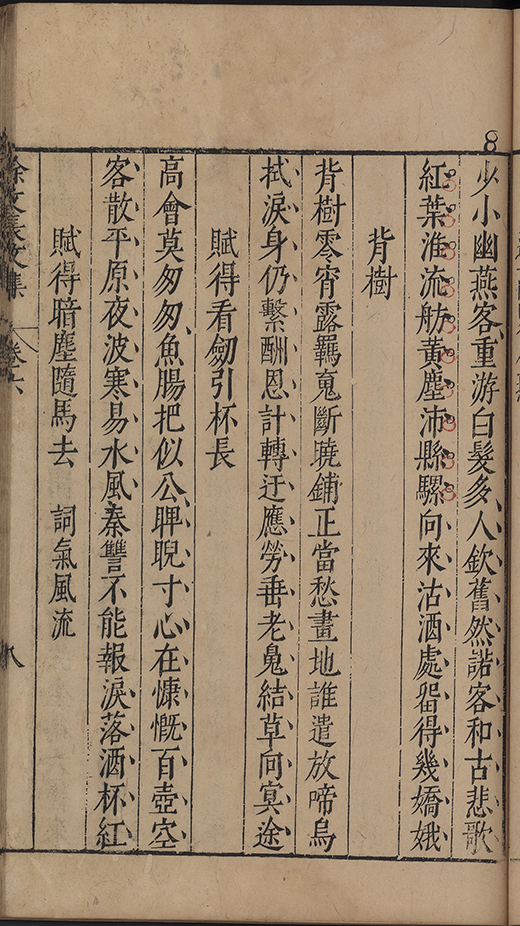 8
少小幽燕客重游白髮多人欽舊然諾客和古悲歌
紅葉淮流舫黃塵沛縣騾向來沽酒處畱得幾嬌娥
背樹
背樹零宵露羈䰟斷曉鋪正當愁畫地誰遣放啼烏
拭淚身仍繫酬恩計轉迂應勞垂老䰟結草向㝠途
賦得看劒引杯長
高會莫匆匆魚腸把似公睥睨寸心在慷慨百壺空
客散平原夜波寒易水風秦讐不能報淚落酒杯紅
賦得暗塵隨馬去 詞氣風流
徐文長文集 卷六 八